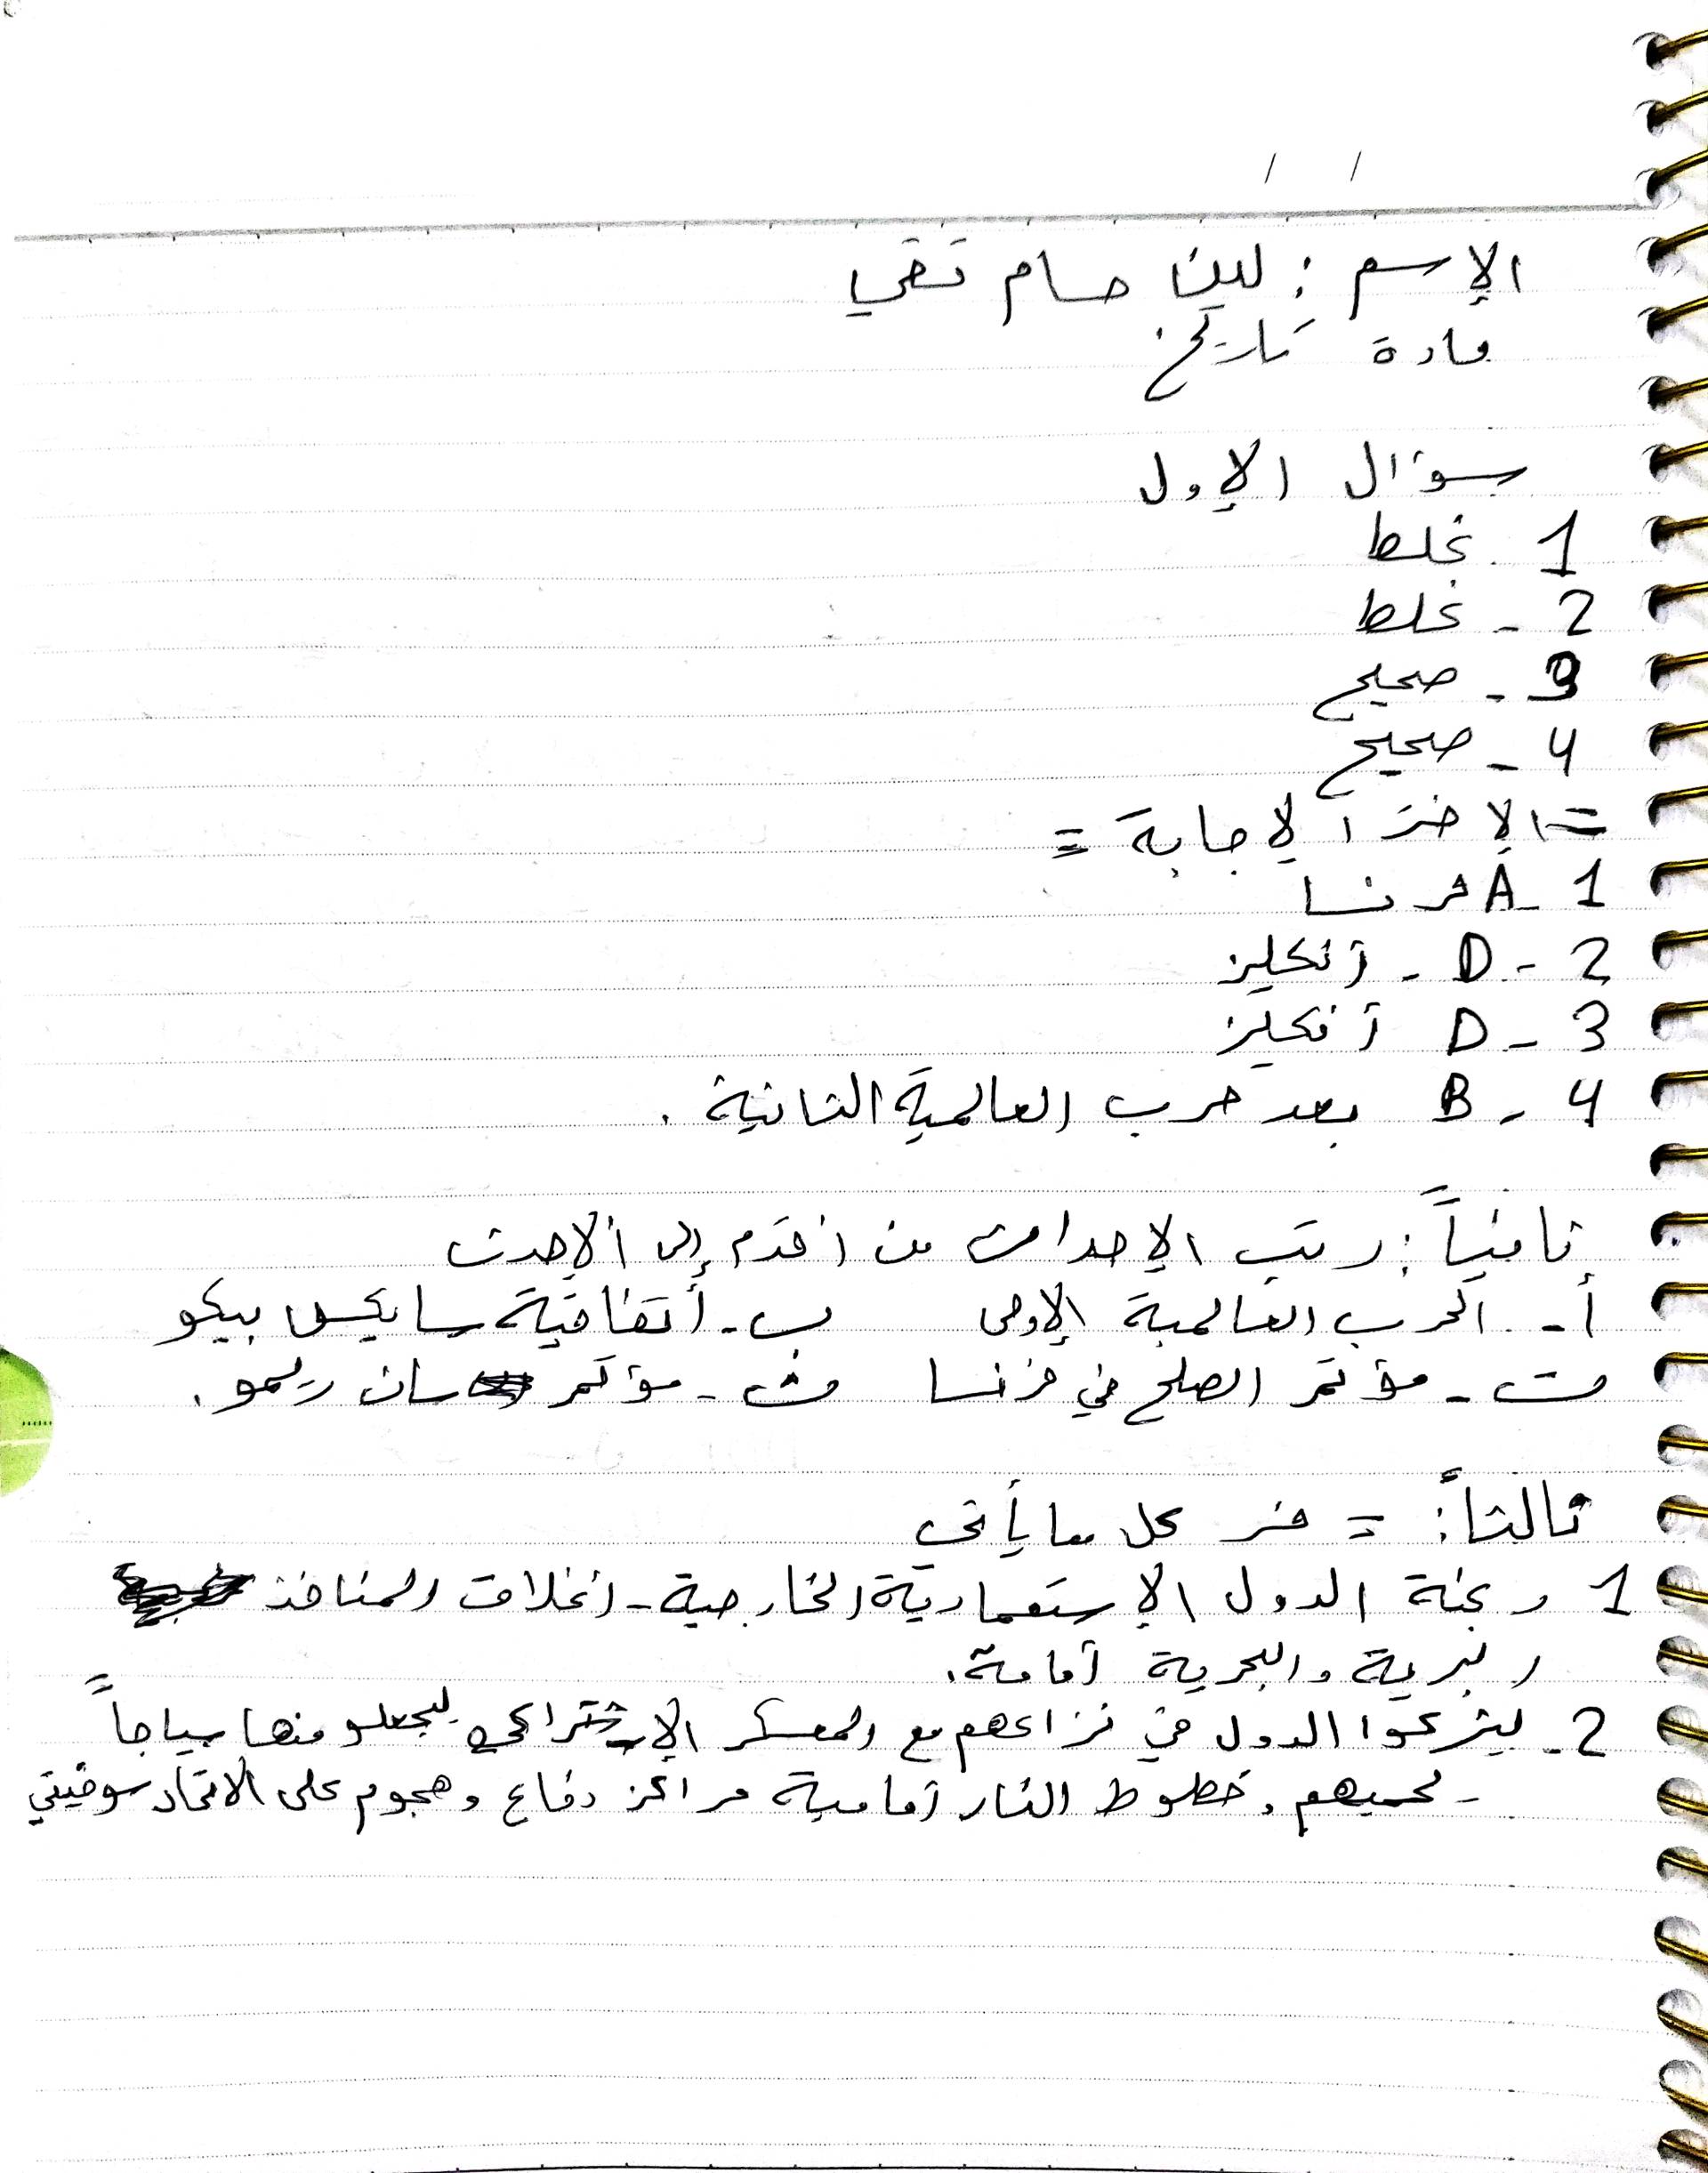 / /
الإسم : لين حسام تقي
مادة تاريخ
سؤال الإول
1 . غلط
2 - غلط
3 - صحيح
4 - صحيح
= الإختر الإجابة =
1 - A فرنسا
2 - D - أنكليز
3 - D أنكليز
4 - B بعد حرب العالمية الثانية .
ثانياً : رتب الإحداث من اقدم إلى الإحدث
أ - الحرب العالمية الإولى ب - أتفاقية سايكس بيكو
ت - مؤتمر الصلح في فرنسا ث - مؤتمر سان ريمو .
ثالثاً : = فسر كل مايأتي
1 رغبة الدول الإستعمارية الخارجية - اغلاق المنافذ
البرية والبحرية أمامة .
2 - ليزعوا الدول في نزاعهم مع المعسكر الإشتراكي ليجعلو منها سياجاً
لحميهم وخطوط النار أمامية مراكز دفاع وهجوم على الاتحاد سوفيتي